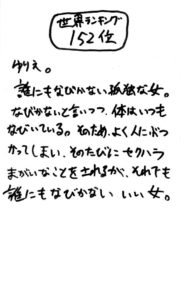 世界ランキング
152位
ゆりえ。
誰にもなびかない孤独な女。
なびかないと言いつつ、体はいつも
なびいている。そのため、よく人にぶつ
かってしまい、そのたびにセクハラ
まがいなことをされるが、それでも
誰にもなびかない いい女。